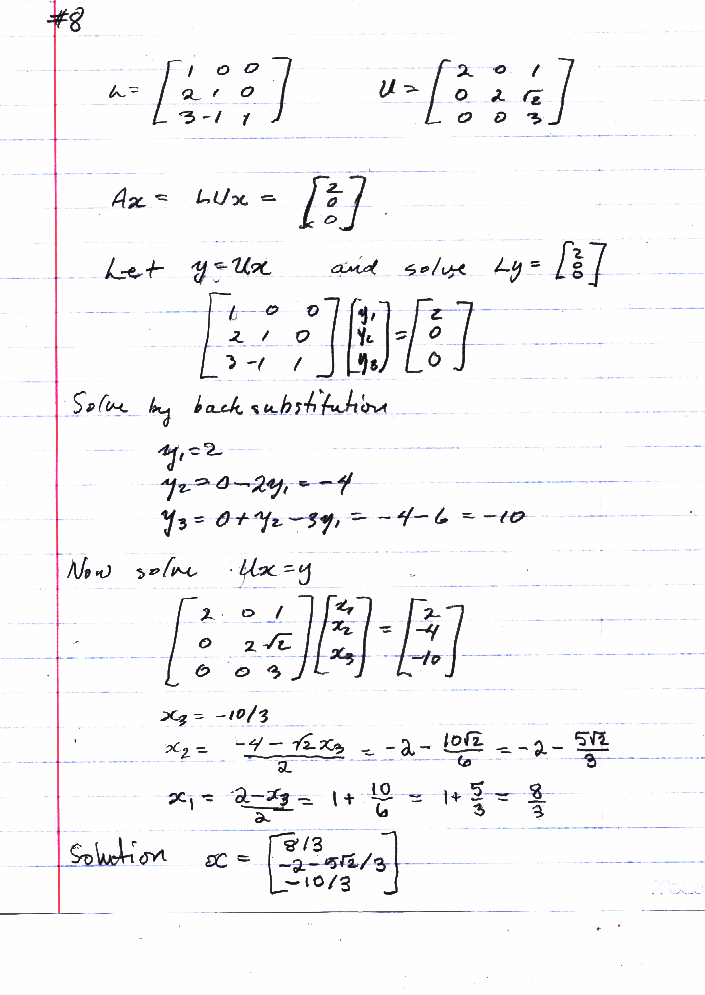 #8
L = [ 1 0 0 ; 2 1 0 ; 3 -1 1 ]    U = [ 2 0 1 ; 0 2 √2 ; 0 0 3 ]
Ax = LUx = [ 2 ; 0 ; 0 ]
Let y = Ux and solve Ly = [ 2 ; 0 ; 0 ]
[ 1 0 0 ; 2 1 0 ; 3 -1 1 ] [ y₁ ; y₂ ; y₃ ] = [ 2 ; 0 ; 0 ]
Solve by back substitution
y₁ = 2
y₂ = 0 - 2y₁ = -4
y₃ = 0 + y₂ - 3y₁ = -4 - 6 = -10
Now solve Ux = y
[ 2 0 1 ; 0 2 √2 ; 0 0 3 ] [ x₁ ; x₂ ; x₃ ] = [ 2 ; -4 ; -10 ]
x₃ = -10/3
x₂ = (-4 - √2 x₃)/2 = -2 - 10√2/6 = -2 - 5√2/3
x₁ = (2 - x₃)/2 = 1 + 10/6 = 1 + 5/3 = 8/3
Solution x = [ 8/3 ; -2 - 5√2/3 ; -10/3 ]